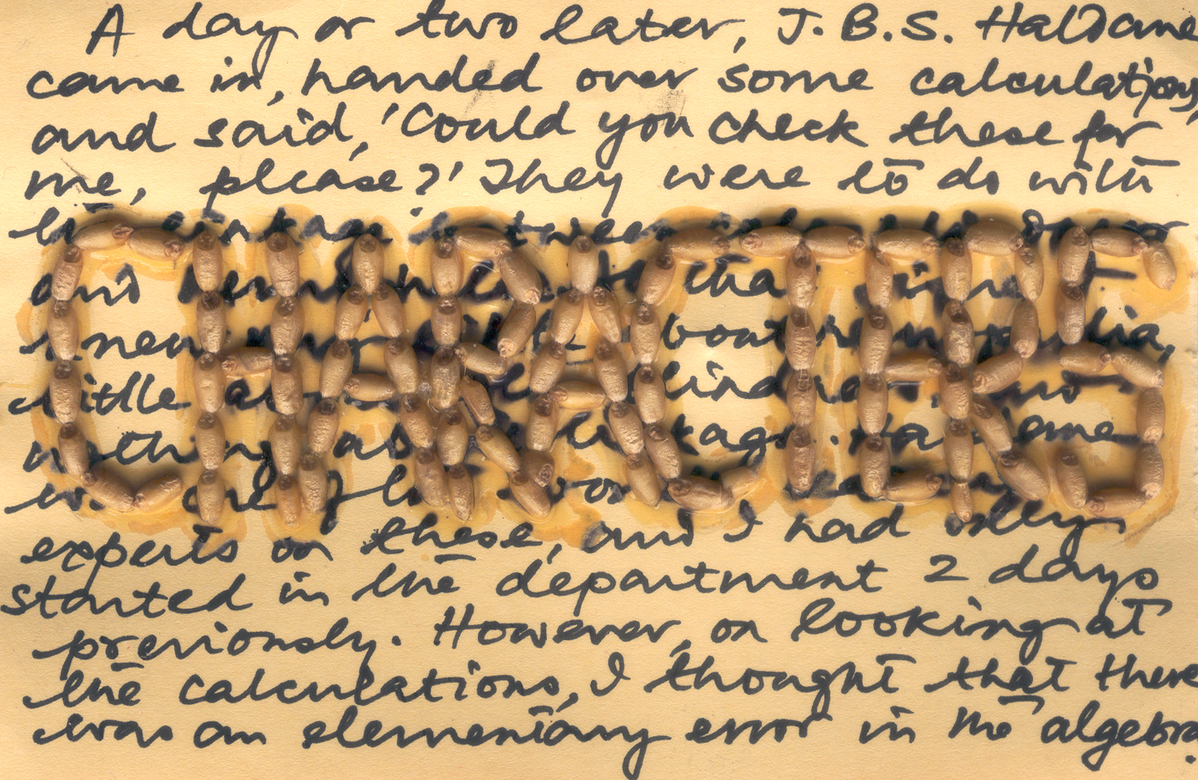 A day or two later, J.B.S. Haldane
came in, handed over some calculations,
and said, 'Could you check these for
me, please?' They were to do with
linkage between
CHARACTERS
and
knew about
little
nothing linkage. Haldane
experts on these, and I had only
started in the department 2 days
previously. However, on looking at
the calculations, I thought that there
was an elementary error in the algebra.